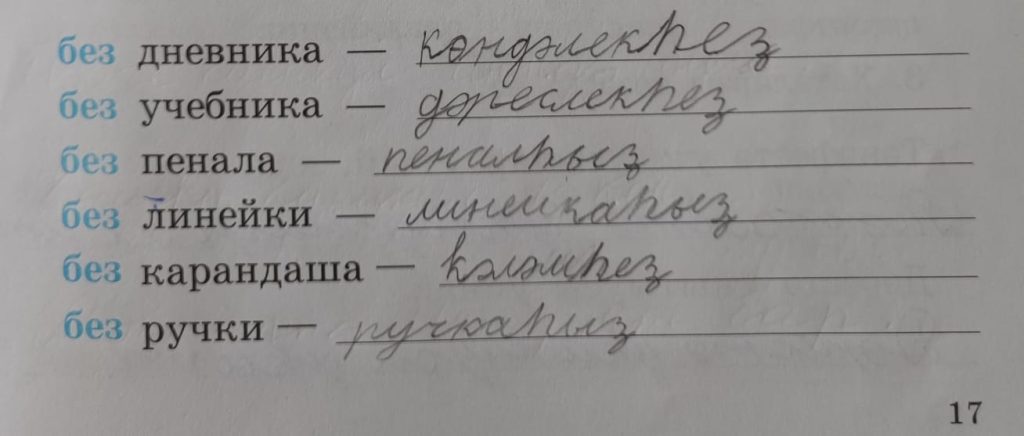 без дневника — көндәлекһеҙ
без учебника — дәреслекһеҙ
без пенала — пеналһыҙ
без линейки — линейкаһыҙ
без карандаша — ҡәләмһеҙ
без ручки — ручкаһыҙ
17